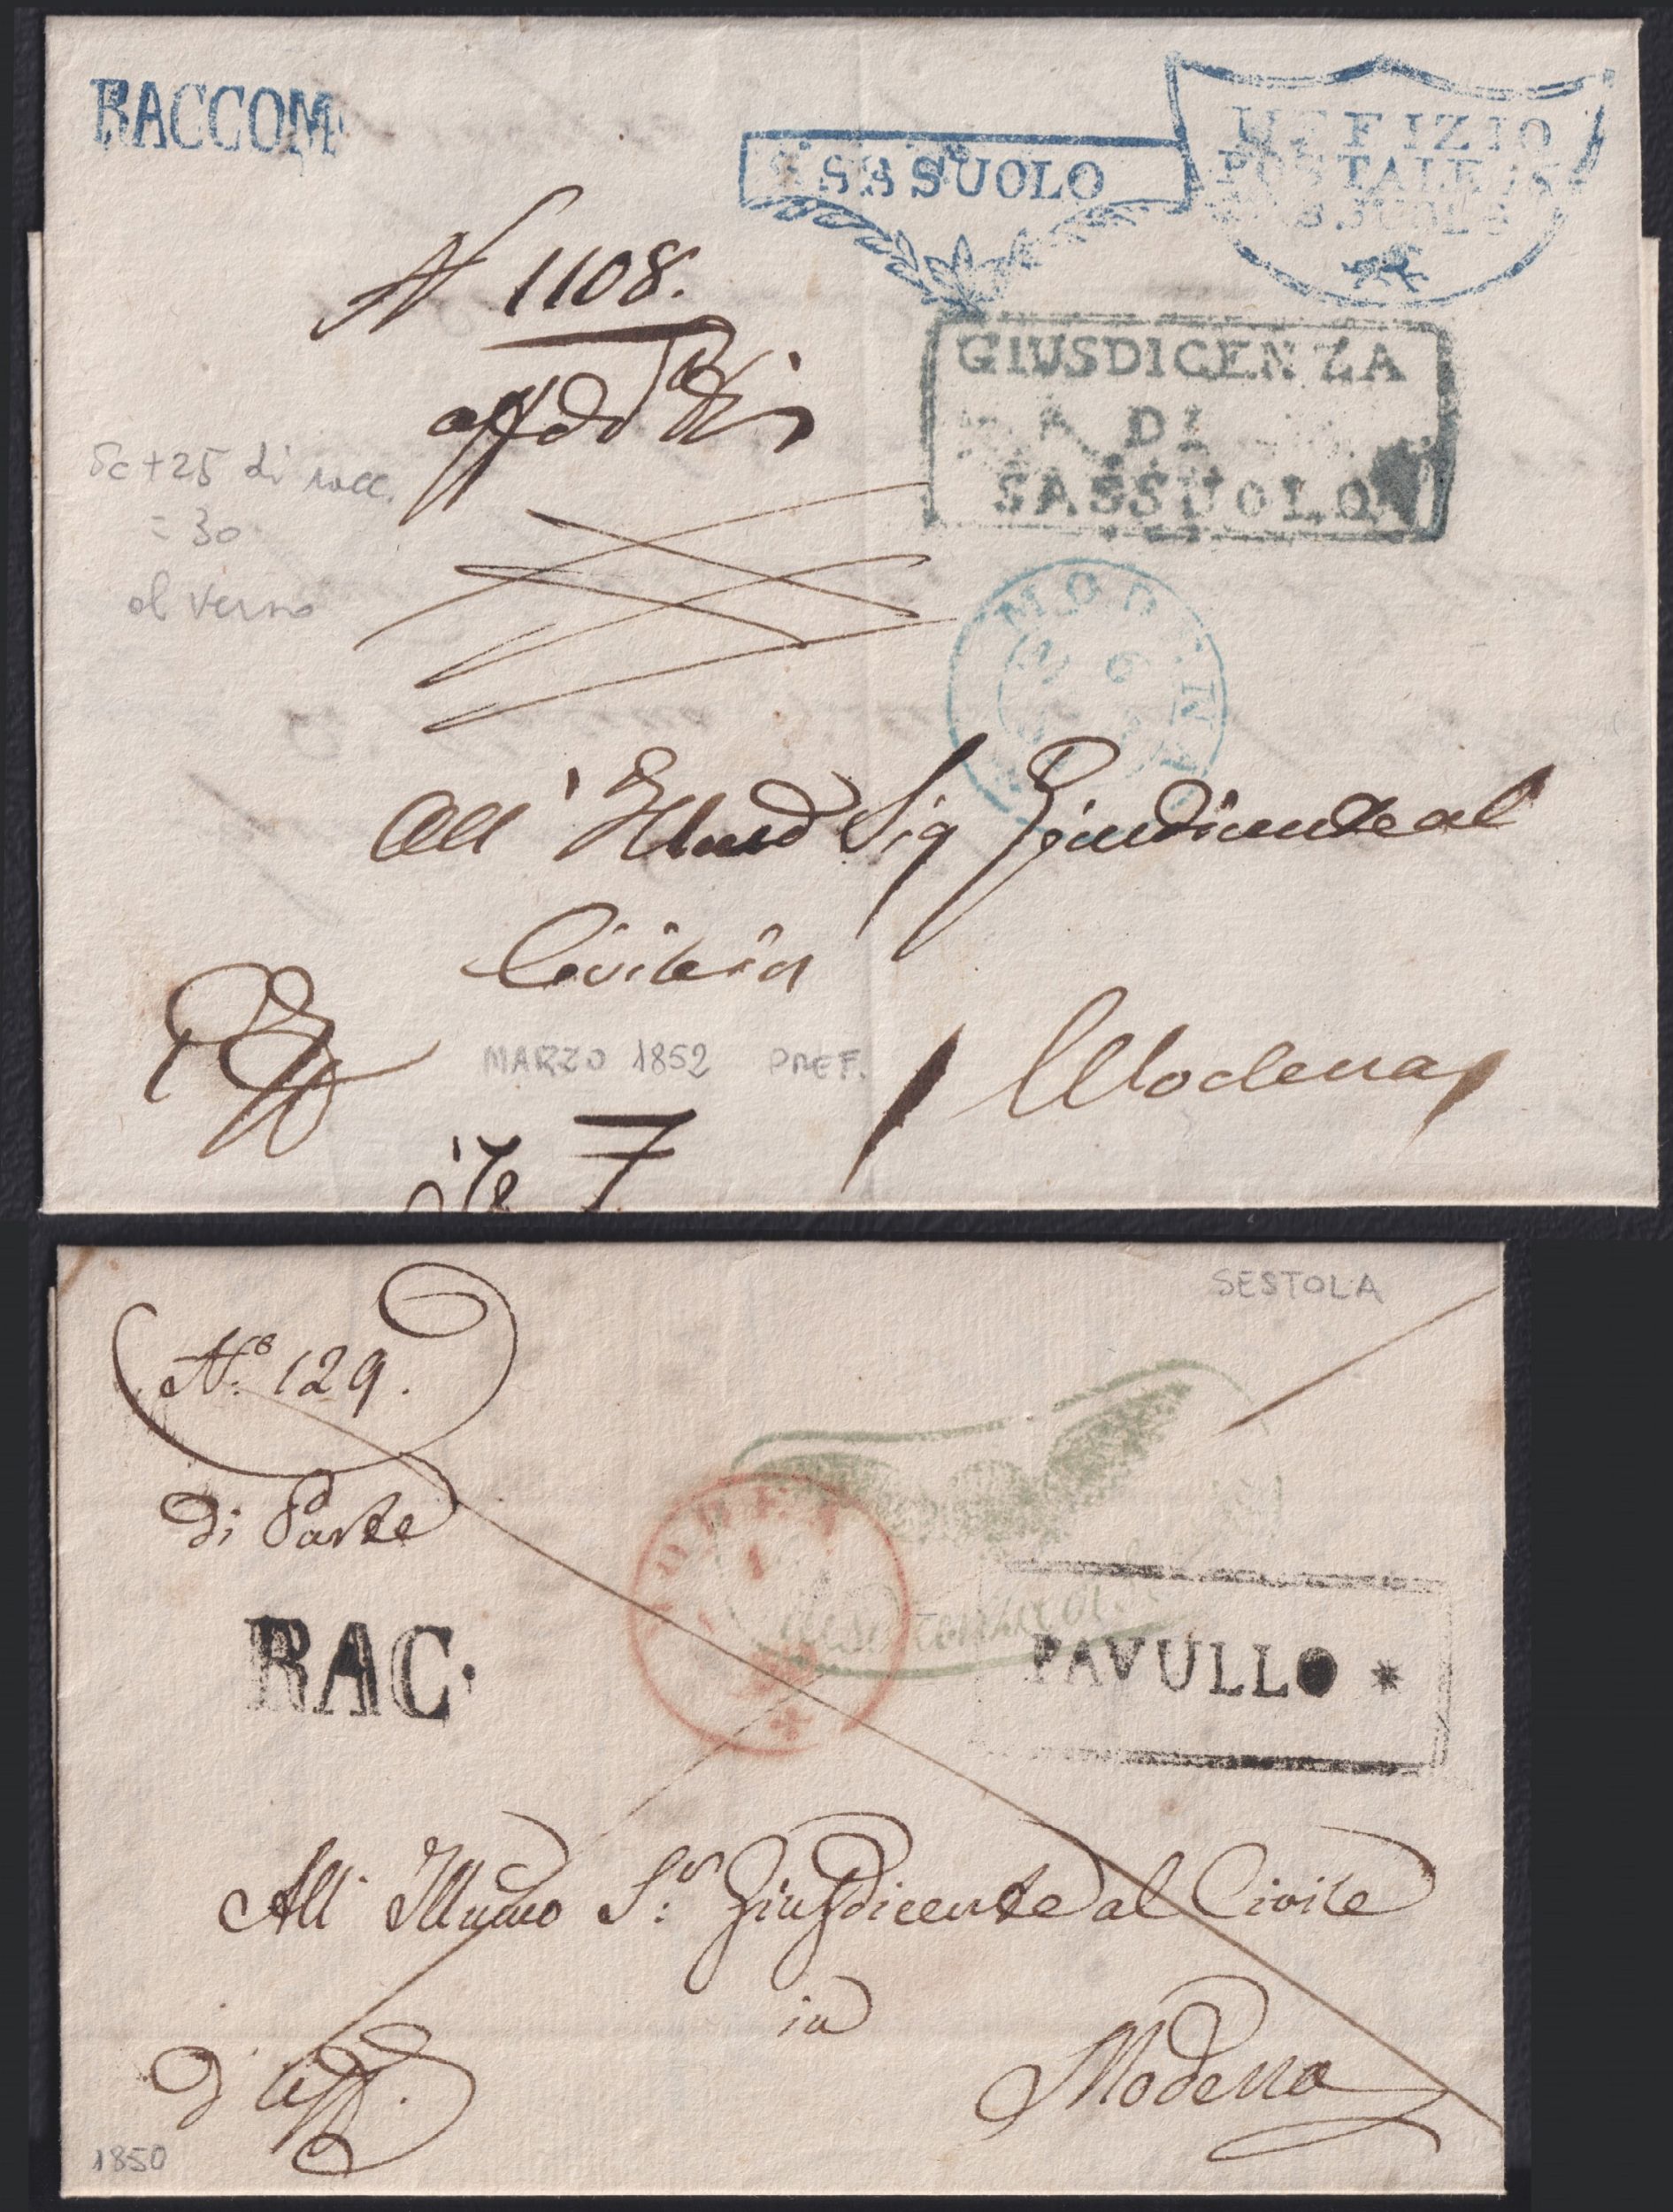 RACCOM
SASSUOLO
UFFIZIO
POSTALE
N 1108.
GIUSDICENZA
DI
SASSUOLO
5c + 25 di racc.
= 30
al verso
MODENA
All' Sig Giusdicente al
Civile in
MARZO 1852 PREF.
Modena
7
SESTOLA
N.o 129.
di Parte
RAC.
MODENA
1
PAVULLO *
All' Illmo S.r Giusdicente al Civile
in
d'uff.
Modena
1850